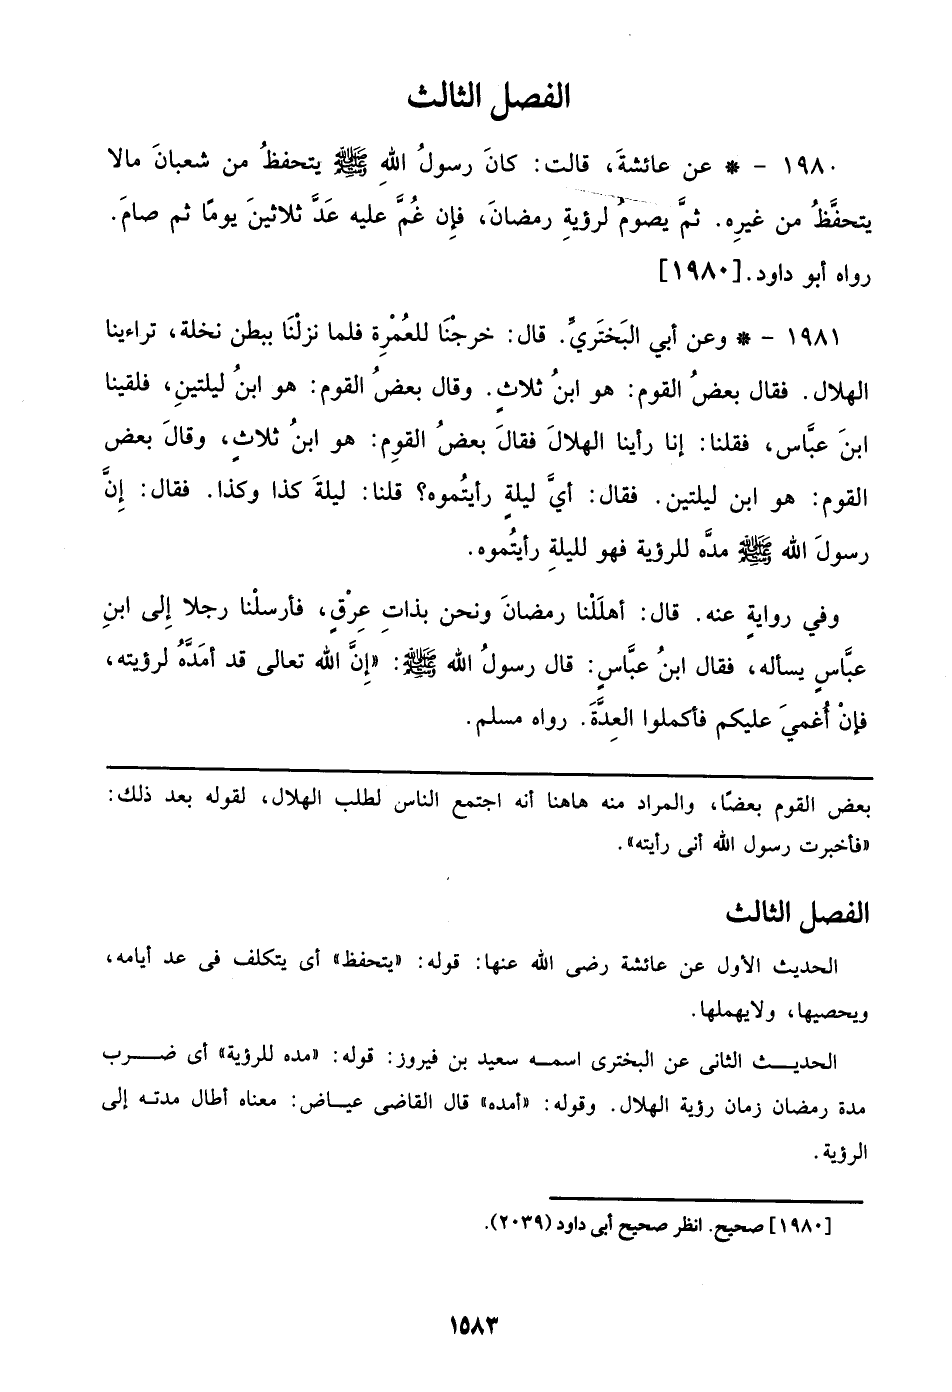 الفصل الثالث
١٩٨٠ - * عن عائشةَ، قالت: كانَ رسولُ اللهِ ﷺ يتحفظُ من شعبانَ مالا
يتحفَّظُ من غيرِه. ثمَّ يصومُ لرؤيةِ رمضانَ، فإِن غُمَّ عليه عَدَّ ثلاثينَ يومًا ثم صامَ.
رواه أبو داود. [١٩٨٠]
١٩٨١ - * وعن أبي البَختَريِّ. قال: خرجْنَا للعُمْرة فلما نزلْنَا ببطن نخلة، تراءينا
الهلال. فقال بعضُ القوم: هو ابنُ ثلاثٍ. وقال بعضُ القوم: هو ابنُ ليلتينِ، فلقينا
ابنَ عبَّاس، فقلنا: إنا رأينا الهلالَ فقالَ بعضُ القومِ: هو ابنُ ثلاثٍ، وقالَ بعض
القوم: هو ابن ليلتين. فقال: أيَّ ليلةٍ رأيتُموه؟ قلنا: ليلةَ كذا وكذا. فقال: إِنَّ
رسولَ الله ﷺ مدَّه للرؤية فهو لليلةِ رأيتُموه.
وفي روايةٍ عنه. قال: أهلَلْنا رمضانَ ونحن بذاتِ عِرْقٍ، فأرسلْنا رجلا إِلى ابنِ
عبَّاسٍ يسأله، فقال ابنُ عبَّاسٍ: قال رسولُ الله ﷺ: «إِنَّ الله تعالى قد أمَدَّهُ لرؤيته،
فإنْ أُغميَ عليكم فأكملوا العِدَّةَ. رواه مسلم.
بعض القوم بعضًا، والمراد منه هاهنا أنه اجتمع الناس لطلب الهلال، لقوله بعد ذلك:
«فأخبرت رسول الله أنى رأيته».
الفصل الثالث
الحديث الأول عن عائشة رضى الله عنها: قوله: «يتحفظ» أى يتكلف فى عد أيامه،
ويحصيها، ولايهملها.
الحديث الثانى عن البخترى اسمه سعيد بن فيروز: قوله: «مده للرؤية» أى ضرب
مدة رمضان زمان رؤية الهلال. وقوله: «أمده» قال القاضى عياض: معناه أطال مدته إلى
الرؤية.
[١٩٨٠] صحيح. انظر صحيح أبى داود (٢٠٣٩).
١٥٨٣